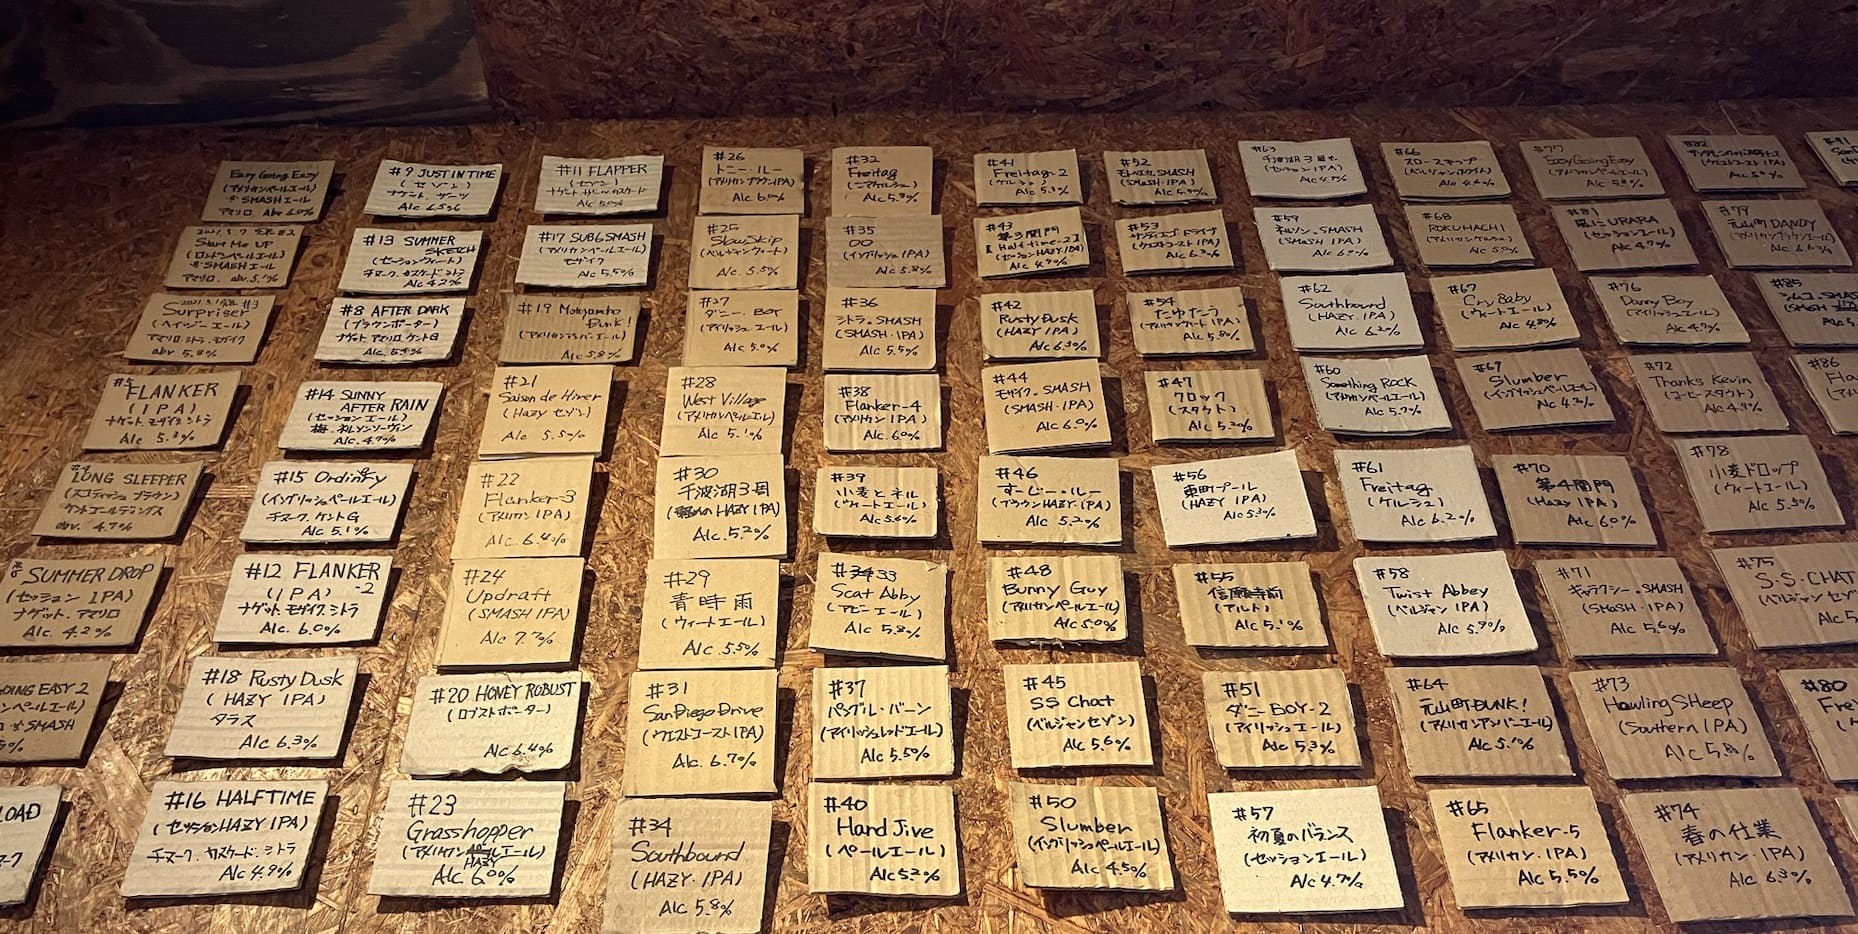 Easy Going Easy
(アメリカンペールエール)
SMASHエール
アマリロ. Abv 6.0%
#9 JUST IN TIME
(セゾン)
Alc 6.5%
#11 FLAPPER
(セゾン)
Alc 5.0%
#26
トニー・ルー
(アメリカンブラウンIPA)
Alc. 6.0%
#32
Freitag
Alc 5.3%
#41
Freitag-2
(ケルシュ)
Alc 5.3%
#52
SMASH
(SMASH・IPA)
#63
千波湖3周
(セッションIPA)
Alc 4.7%
#66
スロースキップ
(ベルジャンホワイト)
#77
Easy Going Easy
(アメリカンペールエール)
Alc 5.8%
#82
(ウエストコーストIPA)
#91
2021.3.7 #2
Start Me UP
(ロンドンペールエール)
SMASHエール
アマリロ. abv. 5.1%
#13 SUMMER
SKETCH
(セッションウィート)
チヌーク. カスケード. シトラ
Alc 4.2%
#17 SUB6SMASH
(アメリカンペールエール)
モザイク
Alc 5.5%
#25
Slow Skip
(ベルジャンウィート)
Alc. 5.5%
#35
DO
(イングリッシュIPA)
Alc 5.8%
#43
第3関門
【Half time-2】
(セッションHAZY IPA)
Alc 4.7%
#53
サンディエゴドライブ
(ウエストコーストIPA)
Alc 6.3%
#59
ネルソン.SMASH
(SMASH IPA)
Alc 6.0%
#68
ROKUHACHI
(アメリカンケルシュ)
Alc 5.0%
#81
風に URARA
(セッションエール)
Alc 4.7%
#79
元山町 DANDY
(アメリカンブラウンエール)
#3
Surpriser
(ヘイジーエール)
アマリロ. シトラ. モザイク
abv 5.8%
#8 AFTER DARK
(ブラウンポーター)
ナゲット アマリロ ケントG
Alc 5.5%
#19 Motoyamacho
Dunk!
(アメリカンアンバーエール)
Alc 5.8%
#27
ダニー. BOY
(アイリッシュエール)
Alc 5.0%
#36
シトラ. SMASH
(SMASH・IPA)
Alc 5.5%
#42
Rusty Dusk
(HAZY IPA)
Alc 6.3%
#54
たゆたう
Alc 5.8%
#62
Southbound
(HAZY. IPA)
Alc 6.2%
#67
Cry Baby
(ウィートエール)
Alc 4.8%
#76
Danny Boy
(アイリッシュエール)
Alc 4.7%
#85
シムコ.SMASH
#5
FLANKER
(IPA)
ナゲット モザイク シトラ
Alc 5.3%
#14 SUNNY
AFTER RAIN
(セッションエール)
梅. ネルソンソーヴィン
Alc 4.7%
#21
Saison de Hiver
(Hazy セゾン)
Alc 5.5%
#28
West Village
(アメリカンペールエール)
Alc 5.1%
#38
Flanker-4
(アメリカン IPA)
Alc. 6.0%
#44
モザイク. SMASH
(SMASH・IPA)
Alc 6.0%
#47
クロック
(スタウト)
Alc 5.2%
#60
Something Rock
(アメリカンペールエール)
Alc 5.7%
#69
Slumber
(イングリッシュペールエール)
Alc 4.3%
#72
Thanks Kevin
(コーヒースタウト)
Alc 4.9%
#86
#4
LONG SLEEPER
(スコティッシュ ブラウン)
ケントゴールディングス
abv. 4.7%
#15 Ordinary
(イングリッシュペールエール)
チヌーク. ケントG
Alc 5.1%
#22
Flanker-3
(アメリカン IPA)
Alc. 6.4%
#30
千波湖3周
HAZY IPA)
Alc. 5.2%
#39
小麦とネル
(ウィートエール)
Alc 5.6%
#46
すーじー・ルー
(ブラウンHAZY. IPA)
Alc 5.2%
#56
東町プール
(HAZY IPA)
Alc 5.3%
#61
Freitag
(ケルシュ)
Alc 6.2%
#70
第4関門
(Hazy IPA)
Alc 6.0%
#78
小麦ドロップ
(ウィートエール)
Alc 5.5%
#6
SUMMER DROP
(セッション IPA)
ナゲット. アマリロ
Alc. 4.2%
#12 FLANKER
-2
(IPA)
ナゲット モザイク シトラ
Alc. 6.0%
#24
Updraft
(SMASH IPA)
Alc 7.7%
#29
青時雨
(ウィートエール)
Alc. 5.5%
#34 33
Scat Abby
(アビーエール)
Alc 5.8%
#48
Bunny Guy
(アメリカンペールエール)
Alc 5.0%
#55
信願寺前
(アルト)
Alc 5.1%
#58
Twist Abbey
(ベルジャン IPA)
Alc 5.9%
#71
ギャラクシー.SMASH
(SMASH・IPA)
Alc 5.6%
#75
S.S.CHAT
(ベルジャンセゾ
Alc 5
GOING EASY 2
SMASH
#18 Rusty Dusk
(HAZY IPA)
タラス
Alc 6.3%
#20 HONEY ROBUST
(ロブストポーター)
Alc 6.4%
#31
San Diego Drive
(ウエストコースト IPA)
Alc. 6.7%
#37
バングル・バーン
(アイリッシュレッドエール)
Alc 5.5%
#45
SS Chat
(ベルジャンセゾン)
Alc 5.6%
#51
ダニーBOY-2
(アイリッシュエール)
Alc 5.3%
#64
元山町DUNK!
(アメリカンアンバーエール)
Alc 5.1%
#73
Howling SHeep
(Southern IPA)
Alc 5.8%
#80
Fre
LOAD
#16 HALFTIME
(セッションHAZY IPA)
チヌーク. カスケード. シトラ
Alc 4.9%
#23
Grasshopper
HAZY
Alc 6.0%
#34
Southbound
(HAZY. IPA)
Alc 5.8%
#40
Hand Jive
(ペールエール)
Alc 5.2%
#50
Slumber
(イングリッシュペールエール)
Alc 4.5%
#57
初夏のバランス
(セッションエール)
Alc 4.7%
#65
Flanker-5
(アメリカン. IPA)
Alc 5.5%
#74
春の仕業
(アメリカン. IPA)
Alc 6.3%